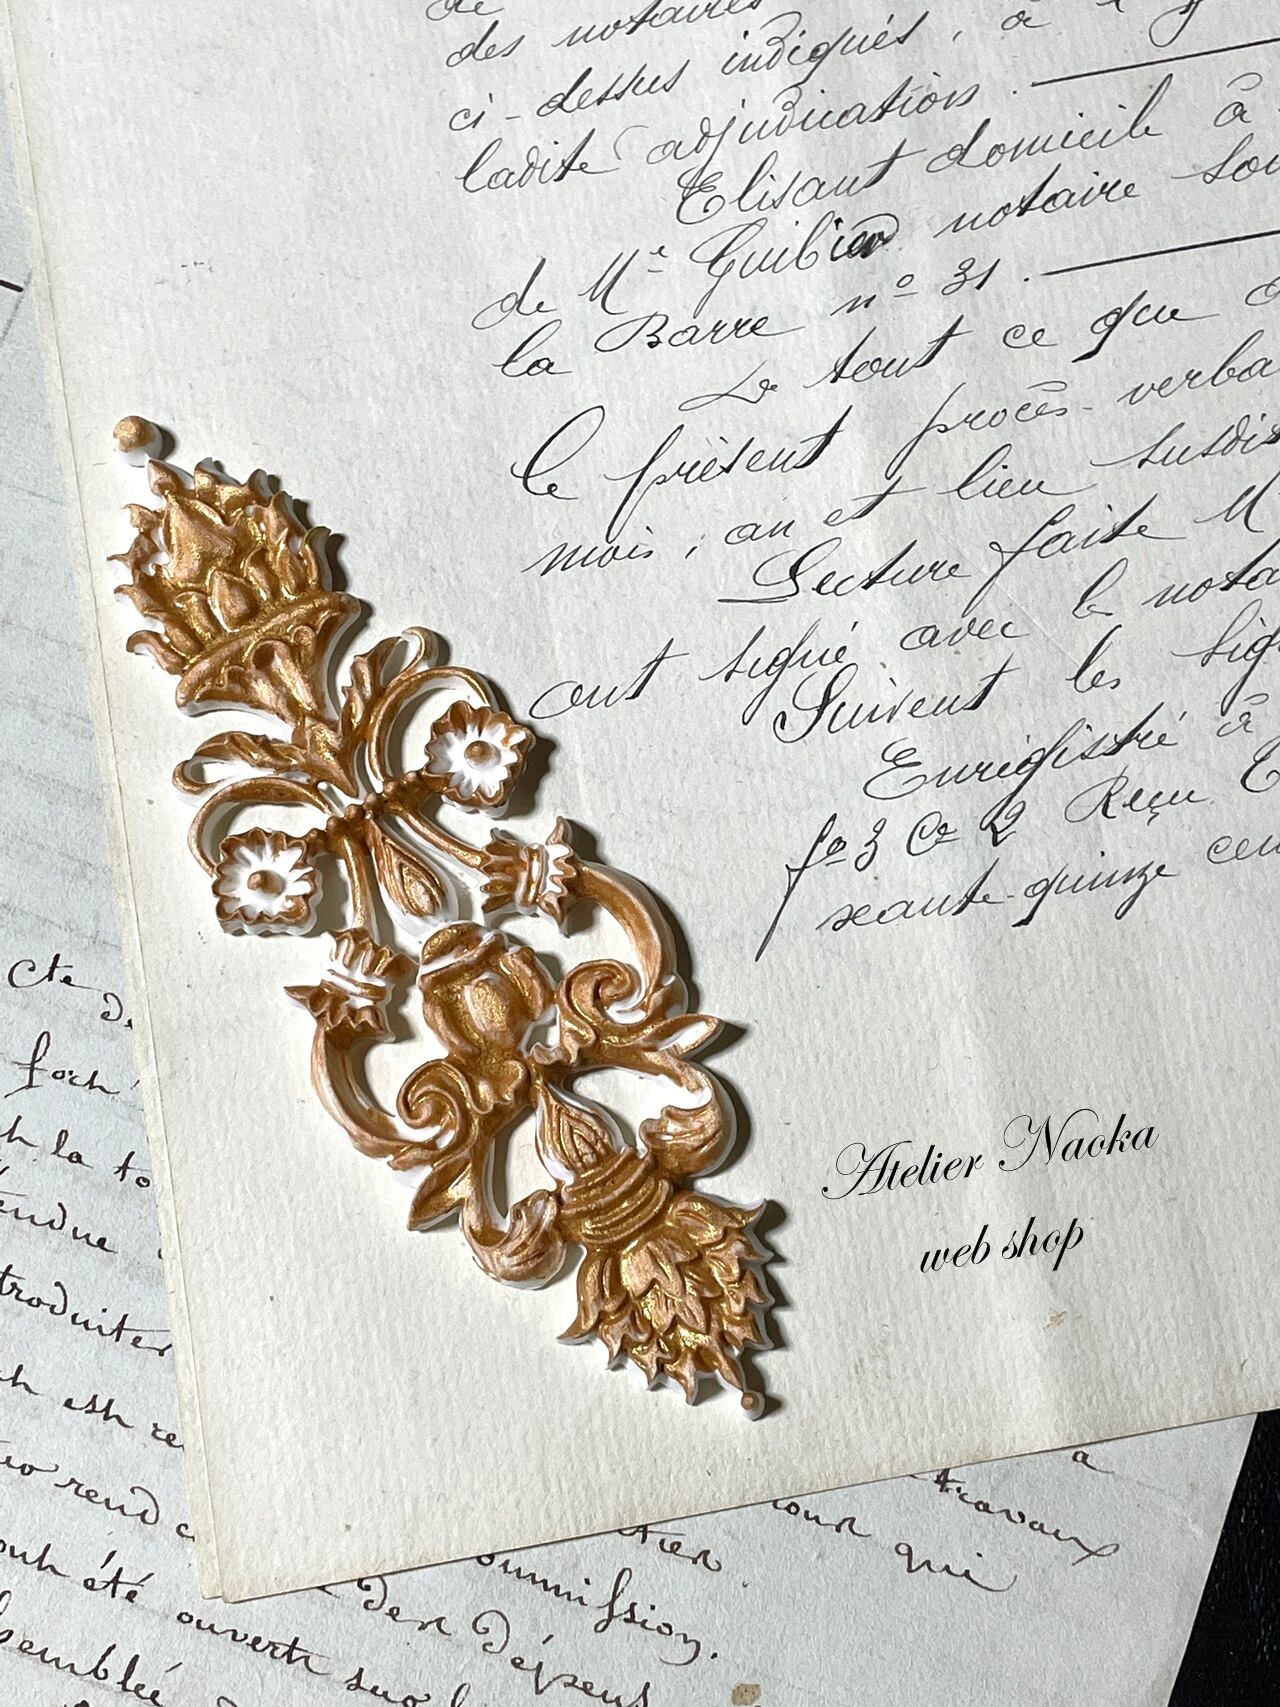 de
des notaires
ci-dessus indiqués, à
ladite adjudication.
Elisant domicile à
de Mᵉ Guibier notaire
la Barre nº 31.
De tout ce que
le présent procès-verba
mois, an et lieu susdis
Lecture faite M
ont signé avec le nota
Suivent les sig
Enregistré à
fº 3 Cᵉ 2 Reçu
xante-quinze cen
Atelier Naoka
web shop
cte
la to
endue
troduiter
est re
rend c
été ouverte sur
semblée
travaux
pour qui
ommission.
der dépens